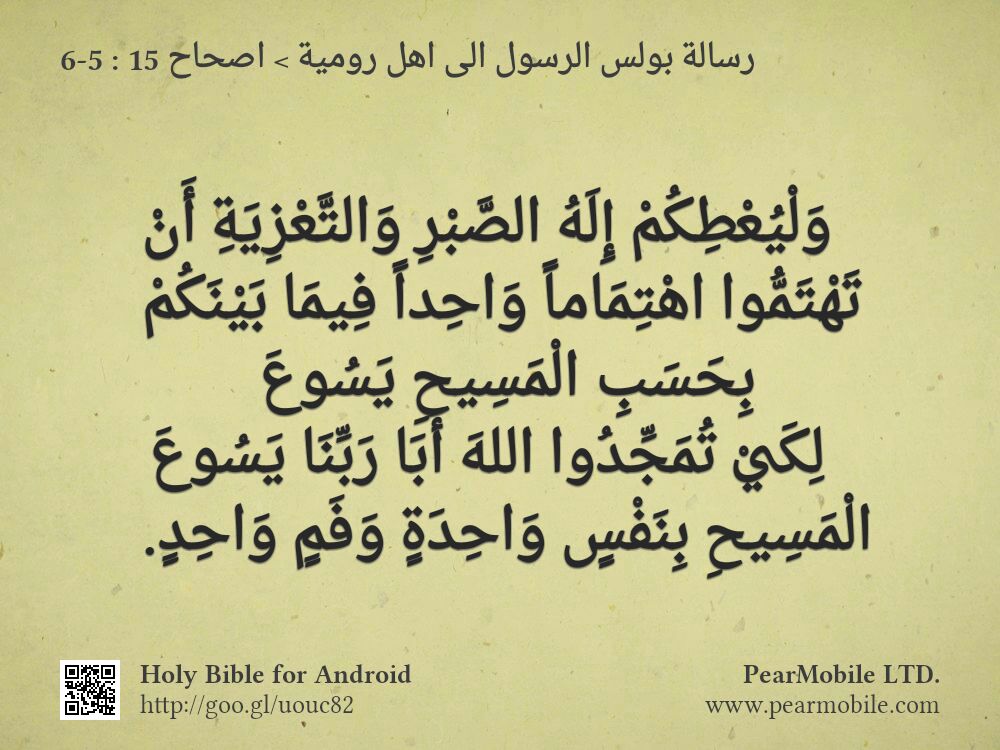 رسالة بولس الرسول الى اهل رومية > اصحاح 15 : 5-6
وَلْيُعْطِكُمْ إِلَهُ الصَّبْرِ وَالتَّعْزِيَةِ أَنْ
تَهْتَمُّوا اهْتِمَاماً وَاحِداً فِيمَا بَيْنَكُمْ
بِحَسَبِ الْمَسِيحِ يَسُوعَ
لِكَيْ تُمَجِّدُوا اللهَ أَبَا رَبِّنَا يَسُوعَ
الْمَسِيحِ بِنَفْسٍ وَاحِدَةٍ وَفَمٍ وَاحِدٍ.
Holy Bible for Android
http://goo.gl/uouc82
PearMobile LTD.
www.pearmobile.com